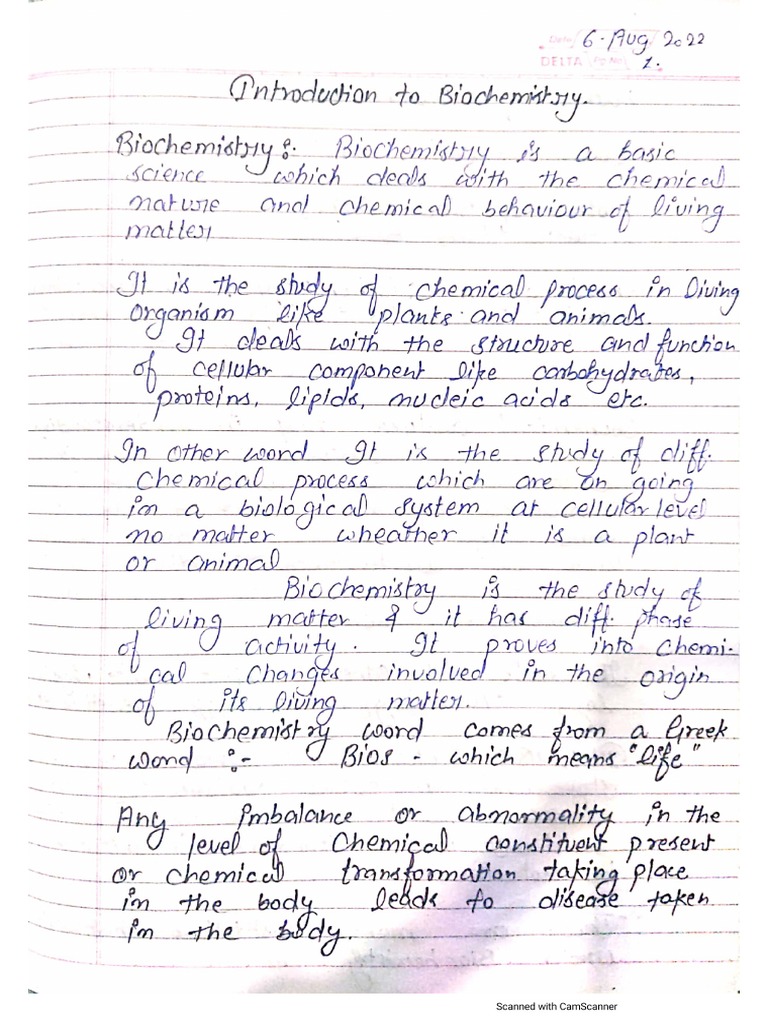 Date 6. Aug 2022
DELTA Pg No 1.
Introduction to Biochemistry.
Biochemistry :- Biochemistry is a basic
science which deals with the chemical
nature and chemical behaviour of living
matter
It is the study of chemical process in living
organism like plants and animals.
It deals with the structure and function
of cellular component like carbohydrates,
proteins, lipids, nucleic acids etc.
In other word It is the study of diff.
chemical process which are on going
in a biological system at cellular level
no matter wheather it is a plant
or animal
Biochemistry is the study of
living matter & it has diff. phase
of activity. It proves into chemi-
cal changes involved in the origin
of its living matter.
Biochemistry word comes from a Greek
word :- Bios - which means "life"
Any imbalance or abnormality in the
level of chemical constituent present
or chemical transformation taking place
in the body leads to disease taken
in the body.
Scanned with CamScanner